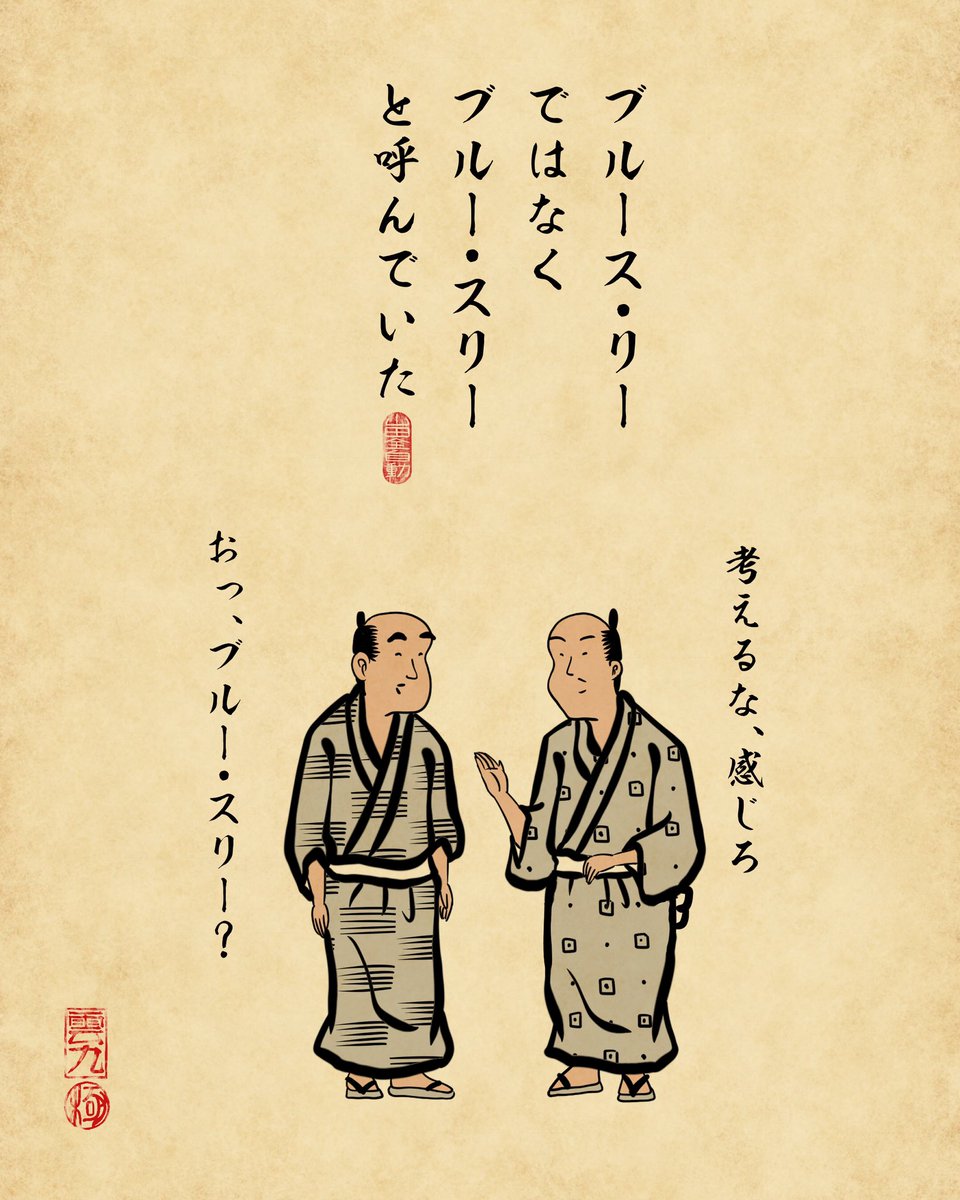 ブルース・リー
ではなく
ブルー・スリー
と呼んでいた
考えるな、感じろ
おっ、ブルー・スリー?